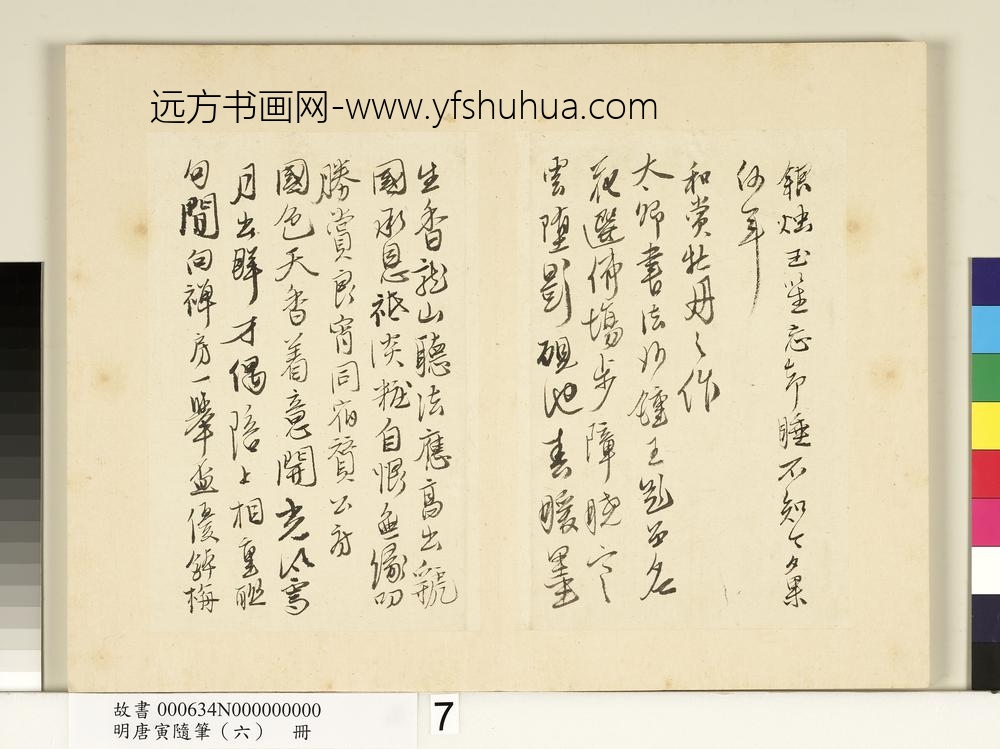 远方书画网-www.yfshuhua.com
銀燭玉笙忘却睡不知今夕果
何年
和賞牡丹之作
太師書法如鍾王題名
花選佛場步障曉
雲墮影硯池春暖墨
生香龍山聽法應高出
國承恩祗淡粧自恨無緣叨
勝賞良宵同宿贊公房
國色天香着意開光風霽
月出群才偶陪上相重聯
句閒向禪房一舉盃優鉢梅
故書 000634N000000000
明唐寅隨筆（六） 冊
7